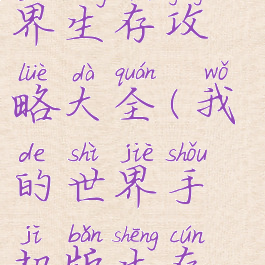 界生存攻
lüè dà quán wǒ
略大全(我
de shì jiè shǒu
的世界手
jī bǎn shēng cún
机版生存